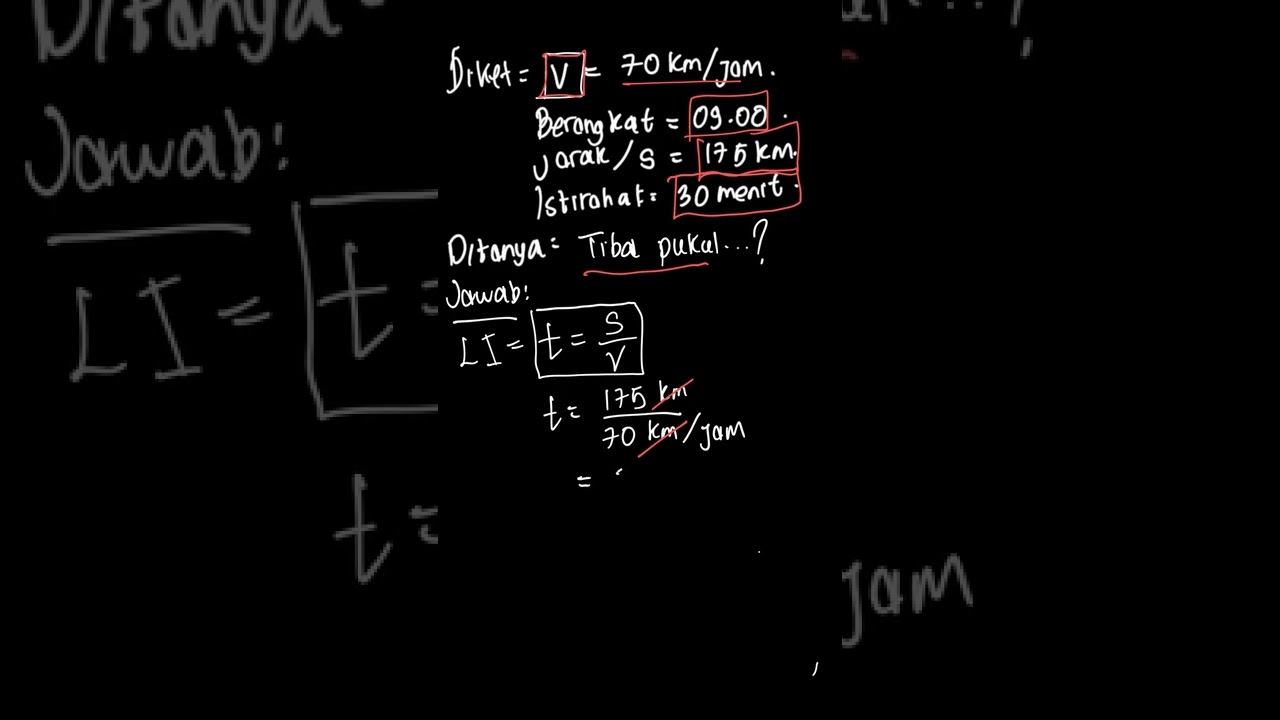 Diket = V = 70 km/jam.
Berangkat = 09.00.
Jarak/s = 175 km.
Istirahat = 30 menit.
Ditanya = Tiba pukul...?
Jawab:
LI = t = s/v
t = 175 km / 70 km/jam
=
Ditanya =
Jawab:
LI = t =
t =
jam